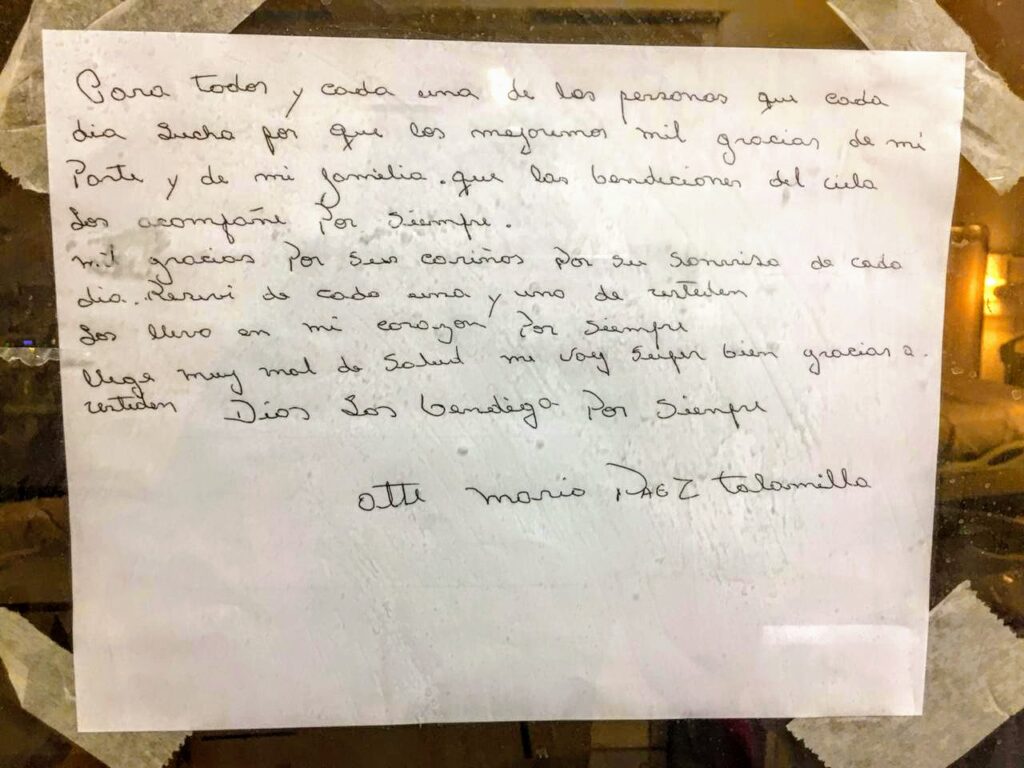 Para todos y cada una de las personas que cada
dia Lucha por que los mejoremos mil gracias de mi
Parte y de mi familia. que las bendiciones del cielo
Los acompañe Por siempre.
mil gracias Por sus cariños Por su Sonrisa de cada
dia. Recivi de cada una y uno de ustedes
Los llevo en mi corazon Por siempre
llege muy mal de Salud me voy Super bien gracias a.
ustedes Dios Los bendiga Por Siempre
Atte Mario PAEZ talamilla